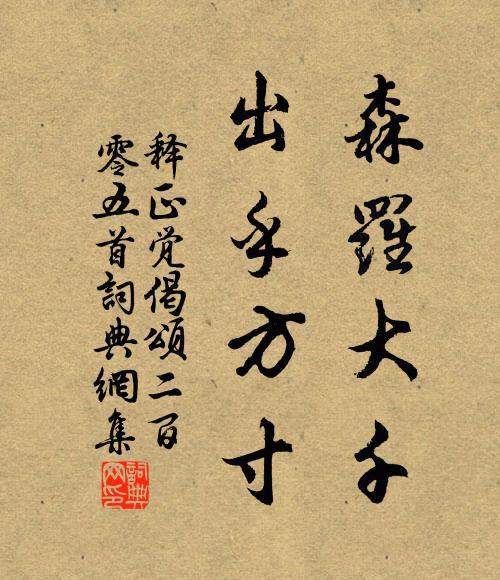 森羅大千
出乎方寸
释正觉偈頌二百
零五首詞典網集
詞典
网印